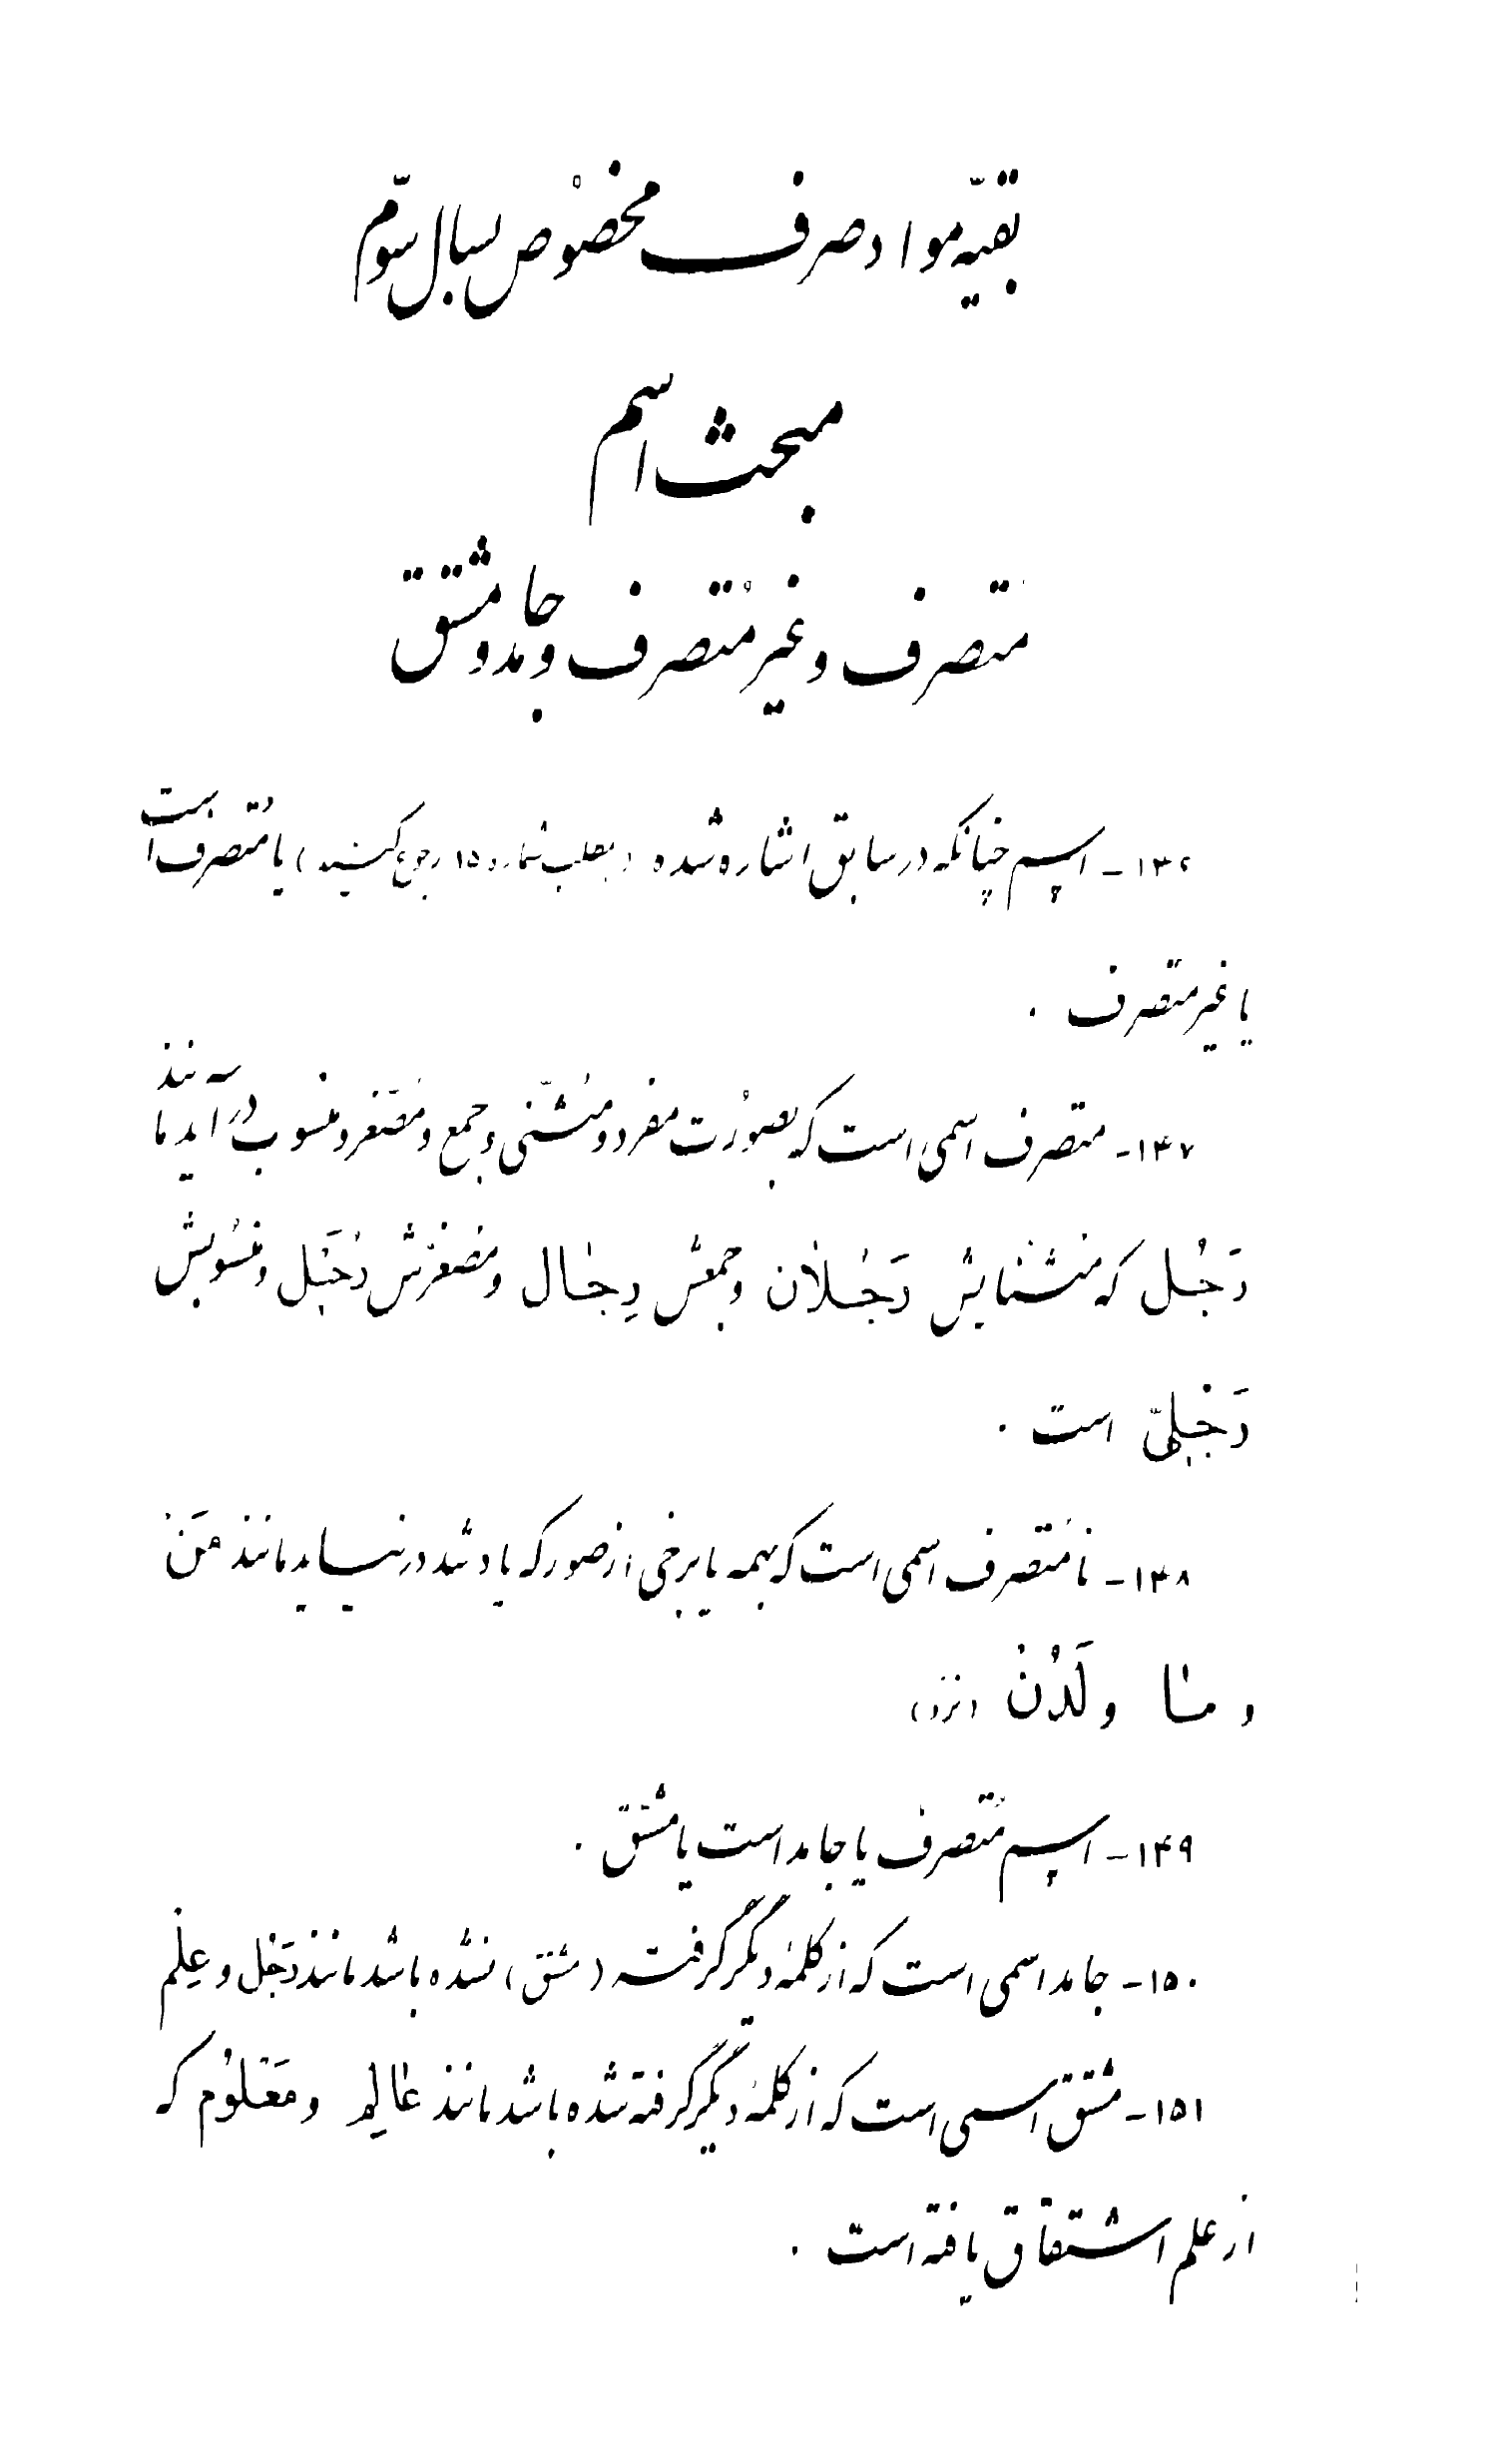 بقیّه مواد صرف مخصوص بسال سوّم
مبحث اسم
متصرف و غیر مُتصرف و جامد و مشتق
۱۴۶- اسم چنانکه در سابق اشاره شده (بمطلب شماره ۱۵ رجوع کنید) یا مُتصرف است
یا غیر متصرف .
۱۴۷- متصرف اسمی است که بصورت مفرد و مثنّی و جمع و مُصَغّر و منسوب در آید مانند
رَجُل که مثنایش رَجُلان و جمعش رِجال و مُصغّرش رُجَیل و منسُوبش
رَجُلِیّ است .
۱۴۸- نامُتصرف اسمی است که بهمه یا برخی از صور که یاد شد در نیاید مانند مَنْ
و ما و لَدُنْ (نزد)
۱۴۹- اسم مُتصرف یا جامد است یا مشتقّ .
۱۵۰- جامد اسمی است که از کلمهٔ دیگر گرفته (مشتق) نشده باشد مانند رَجُل و عِلْم
۱۵۱- مشتق اسمی است که از کلمهٔ دیگر گرفته شده باشد مانند عالِم و مَعْلُوم که
از علم اشتقاق یافته است .